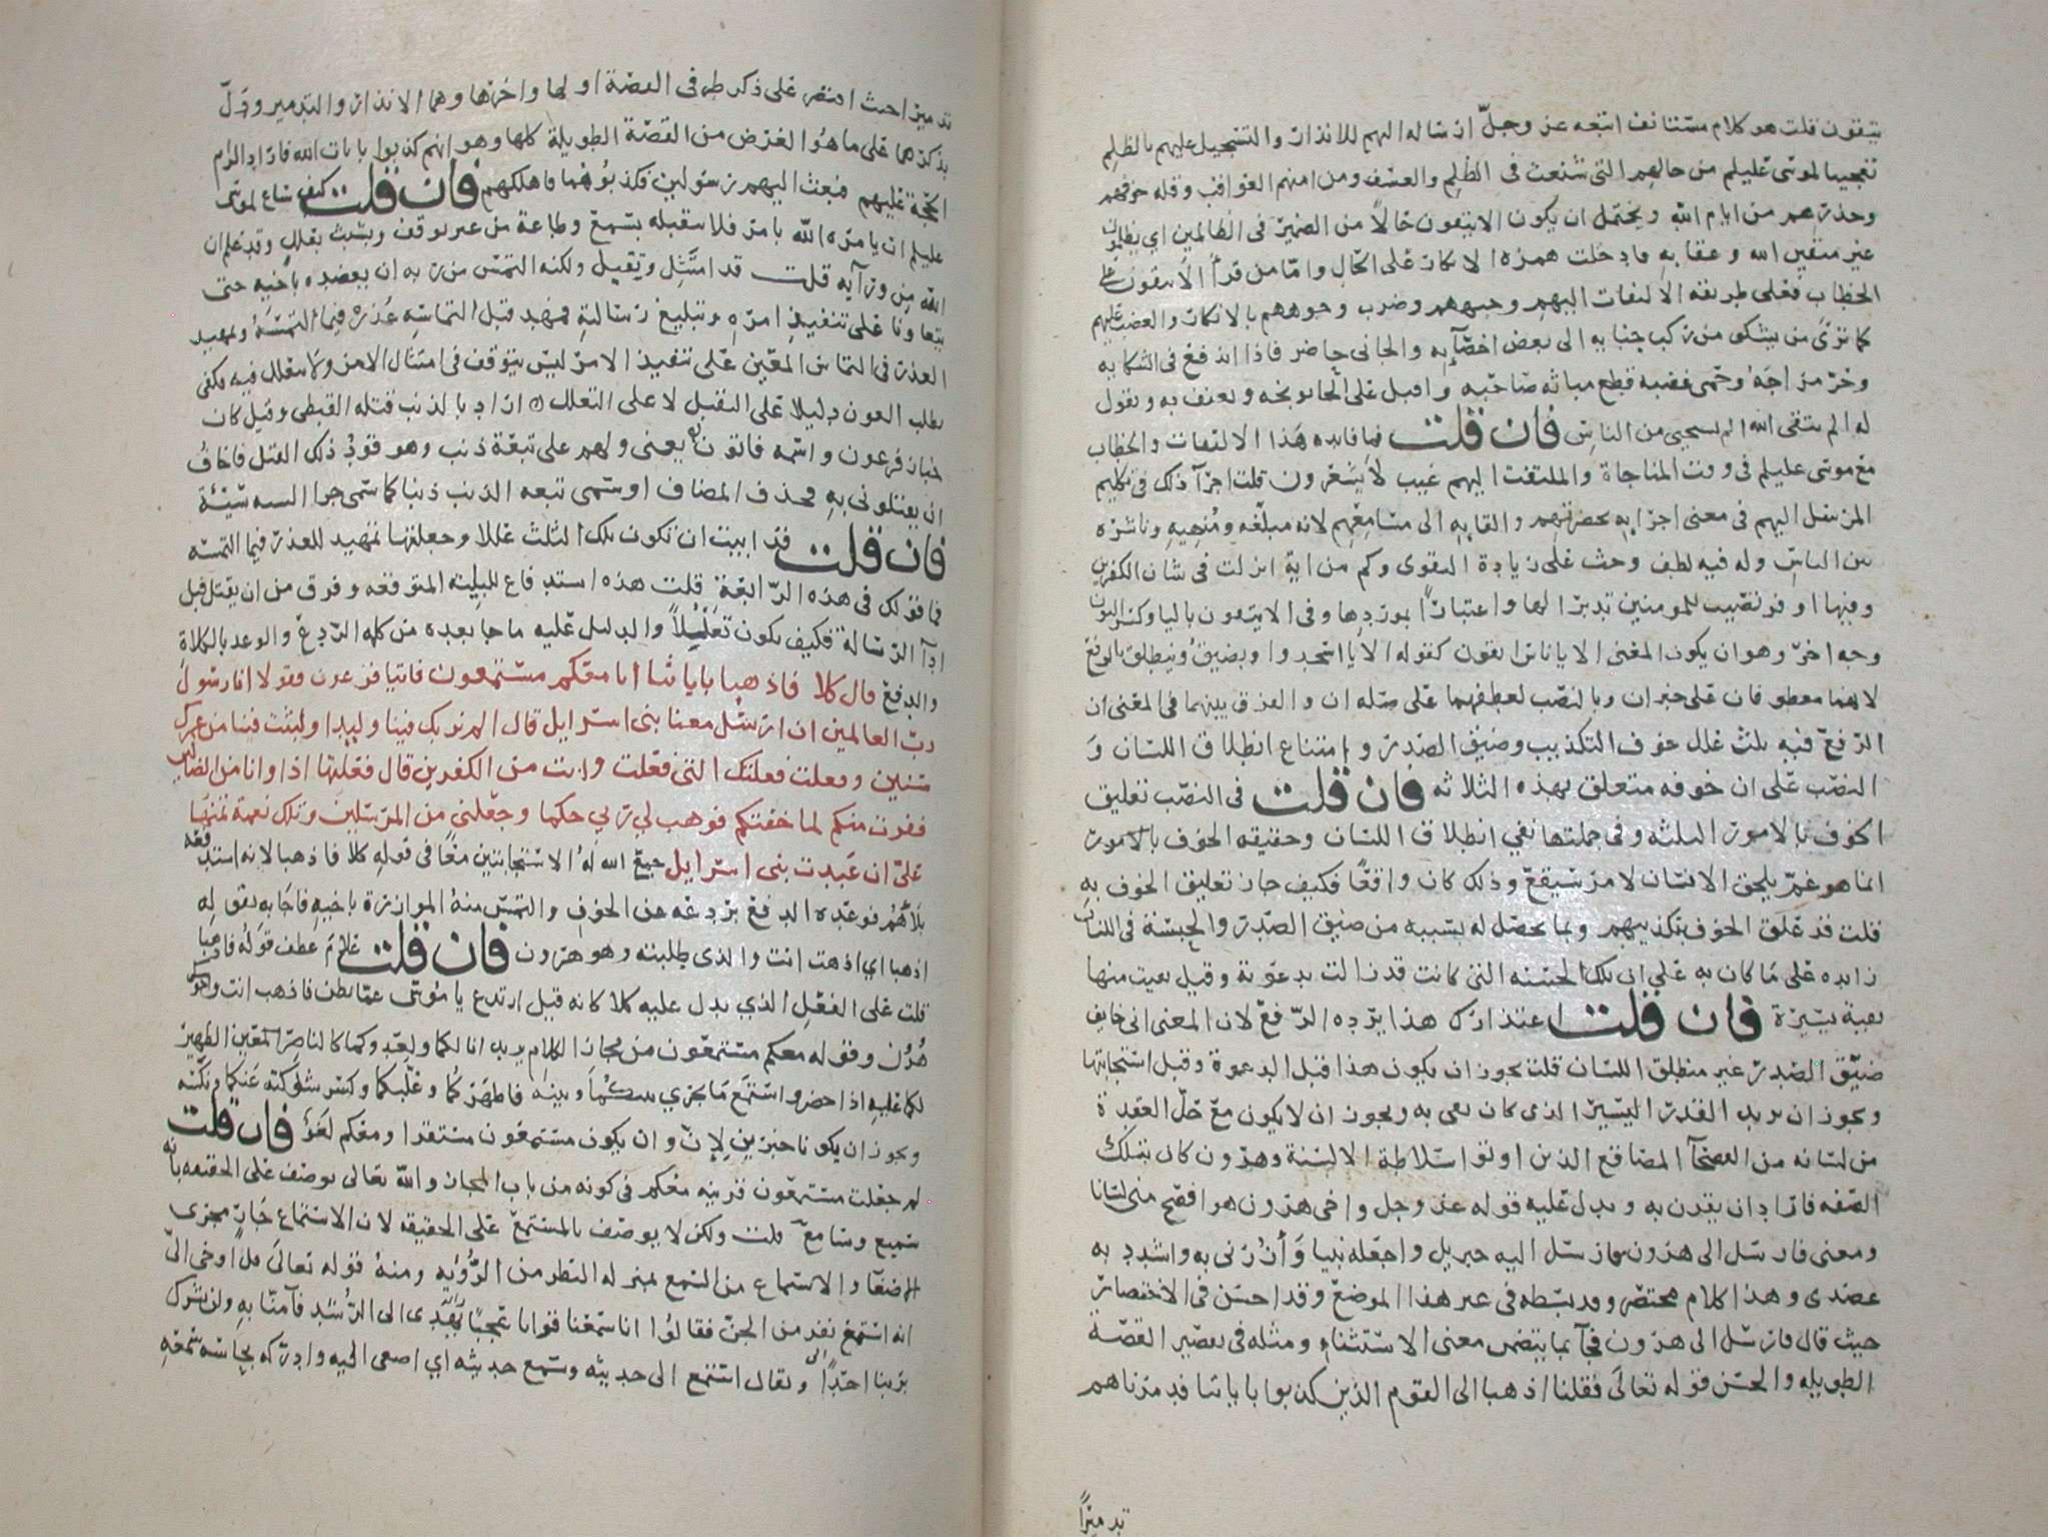 يتقون قلت هو كلام مستانف اتبعه عز وجل ارساله اليهم للانذار والتسجيل عليهم بالظلم
تعجيبا لموسى عليلم من حالهم التي شنعت في الظلم والعسف ومن امنهم العواقب وقله خوفهم
وحذرهم من ايام الله ويحتمل ان يكون الا يتقون حالا من الضمير في الظالمين اي يظلمون
غير متقين الله وعقابه فادخلت همزه الانكار على الحال واما من قرا الا تتقون على
الخطاب فعلى طريقه الالتفات اليهم وجبههم وضرب وجوههم بالانكار والغضب عليهم
كما ترى من يشكو من ركب جنايه الى بعض اخصآيه والجاني حاضر فاذا اندفع في الشكايه
وحر مزاجه وحمى غضبه قطع مباثه صاحبه واقبل على الجاني يوبخه ويعنف به ويقول
له الم تتقى الله الم تستحيى من الناس فان قلت فما فايده هذا الالتفات والخطاب
مع موسى عليلم في وقت المناجاة والملتفت اليهم غيب لا يشعرون قلت اجرآ ذلك في تكليم
المرسل اليهم في معنى اجرايه بحضرتهم والقايه الى مسامعهم لانه مبلغه ومنهيه وناشره
بين الناس وله فيه لطف وحث على زيادة التقوى وكم من اية انزلت في شان الكفرين
وفيها اوفر نصيب للمومنين تدبرا لها واعتبارا بموردها وفي الا يتقون باليا وكسر النون
وجه اخر وهو ان يكون المعنى الا يا ناس اتقون كقوله الا يا اسجدوا ويضيق وينطلق بالرفع
لانهما معطوفان على خبر ان وبالنصب لعطفهما على صله ان والفرق بينهما في المعنى ان
الرفع فيه ثلث علل خوف التكذيب وضيق الصدر وامتناع انطلاق اللسان و
النصب على ان خوفه متعلق بهذه الثلاثه فان قلت في النصب تعليق
الخوف بالامور الثلثه وفي جملتها نفي انطلاق اللسان وحقيقه الخوف بالامور
انما هو غم يلحق الانسان لامر سيقع وذلك كان واقعا فكيف جاز تعليق الخوف به
قلت قد علق الخوف بتكذيبهم وبما يحصل له بسببه من ضيق الصدر والحبسة في اللسان
زايده على ما كان به على ان تلك الحبسه التي كانت قد زالت بدعوته وقيل بقيت منها
بقية يسيرة فان قلت اعتذارك هذا يرده الرفع لان المعنى اني خايف
ضيق الصدر غير منطلق اللسان قلت يجوز ان يكون هذا قبل الدعوة وقبل استجابتها
ويجوز ان يريد القدر اليسير الذي كان بقى به ويجوز ان لا يكون مع حل العقدة
من لسانه من الفصحآ المصاقع الذين اوتوا سلاطة الالسنة وهرون كان بتلك
الصفه فاراد ان يقرن به ويدل عليه قوله عز وجل واخى هرون هو افصح منى لسانا
ومعنى فارسل الى هرون فارسل اليه جبريل واجعله نبيا وأزرني به واشدد به
عضدى وهذا كلام مختصر وقد بسطه في غير هذا الموضع وقد احسن في الاختصار
حيث قال فارسل الى هرون فجآ بما يتضمن معنى الاستنباء ومثله في تقصير القصة
الطويله والحسن قوله تعالى فقلنا اذهبا الى القوم الذين كذبوا باياتنا فدمرناهم
تدميرًا
تدميرا حيث اقتصر على ذكر طرفي القصة اولها واخرها وهما الانذار والتدمير ودل
بذكرهما على ما هو الغرض من القصة الطويلة كلها وهو انهم كذبوا بايات الله فاراد الزام
الحجة عليهم فبعث اليهم رسولين فكذبوهما فاهلكهم فان قلت كيف ساغ لموسى
عليلم ان يامره الله بامر فلا يتقبله بسمع وطاعة من غير توقف وتشبث بعلل وقد علم ان
الله من ورآيه قلت قد امتثل وتقبل ولكنه التمس من ربه ان يعضده باخيه حتى
يتعاونا على تنفيذ امره وتبليغ رسالته فمهد قبل التماسه عذره فيما التمسه وتمهيد
العذر في التماس المعين على تنفيذ الامر ليس بتوقف في امتثال الامر ولا تعلل فيه وكفى
بطلب العون دليلا على التقبل لا على التعلل اراد بالذنب قتله القبطي وقيل كان
خباز فرعون واسمه فاتون يعنى ولهم على تبعة ذنب وهو قود ذلك القتل فاخاف
ان يقتلوني به فحذف المضاف او سمى تبعه الذنب ذنبا كما سمى جزا السيه سيئة
فان قلت قد ابيت ان تكون تلك الثلث عللا وجعلتها تمهيد للعذر فيما التمسه
فما قولك في هذه الرابعة قلت هذه استدفاع للبليه المتوقعه وفرق من ان يقتل قبل
ادآ الرسالة فكيف يكون تعليلا والدليل عليه ما جا بعده من كلمه الردع والوعد بالكلاة
والدفع قال كلا فاذهبا باياتنا انا معكم مستمعون فاتيا فرعون فقولا انا رسول
رب العالمين ان ارسل معنا بنى اسرايل قال الم نربك فينا وليدا ولبثت فينا من عمرك
سنين وفعلت فعلتك التى فعلت وانت من الكفرين قال فعلتها اذا وانا من الضالين
ففررت منكم لما خفتكم فوهب لي ربي حكما وجعلني من المرسلين وتلك نعمة تمنها
على ان عبدت بنى اسرايل جمع الله له الاستجابتين معا في قوله كلا فاذهبا لانه استدفعه
بلآهم فوعده الدفع بردعه عن الخوف والتمس منه الموازرة باخيه فاجابه بقوله
اذهبا اي اذهب انت والذى طلبته وهو هرون فان قلت علام عطف قوله فاذهبا
قلت على الفعل الذي يدل عليه كلا كانه قيل ارتدع يا موسى عما تظن فاذهب انت وهو
هرون وقوله معكم مستمعون من مجاز الكلام يريد انا لكما ولعدوكما كالناصر المعين الظهير
لكما عليه اذا حضر واستمع ما يجري بينكما وبينه فاظهركما وغلبكما وكسر شوكته عنكما ونكسه
ويجوز ان يكونا خبرين لإن وان يكون مستمعون مستقرا ومعكم لغو فان قلت
لم جعلت مستمعون قرينه معكم في كونه من باب المجاز والله تعالى يوصف على الحقيقه بانه
سميع وسامع قلت ولكن لا يوصف بالمستمع على الحقيقه لان الاستماع جار مجرى
الاصغآ والاستماع من السمع بمنزله النظر من الرؤيه ومنه قوله تعالى قل اوحى الى
انه استمع نفر من الجن فقالوا انا سمعنا قرانا عجبا يهدى الى الرشد فآمنا به ولن نشرك
بربنا احدا ويقال استمع الى حديثه وسمع حديثه اي اصغى اليه وادركه بحاسه سمعه